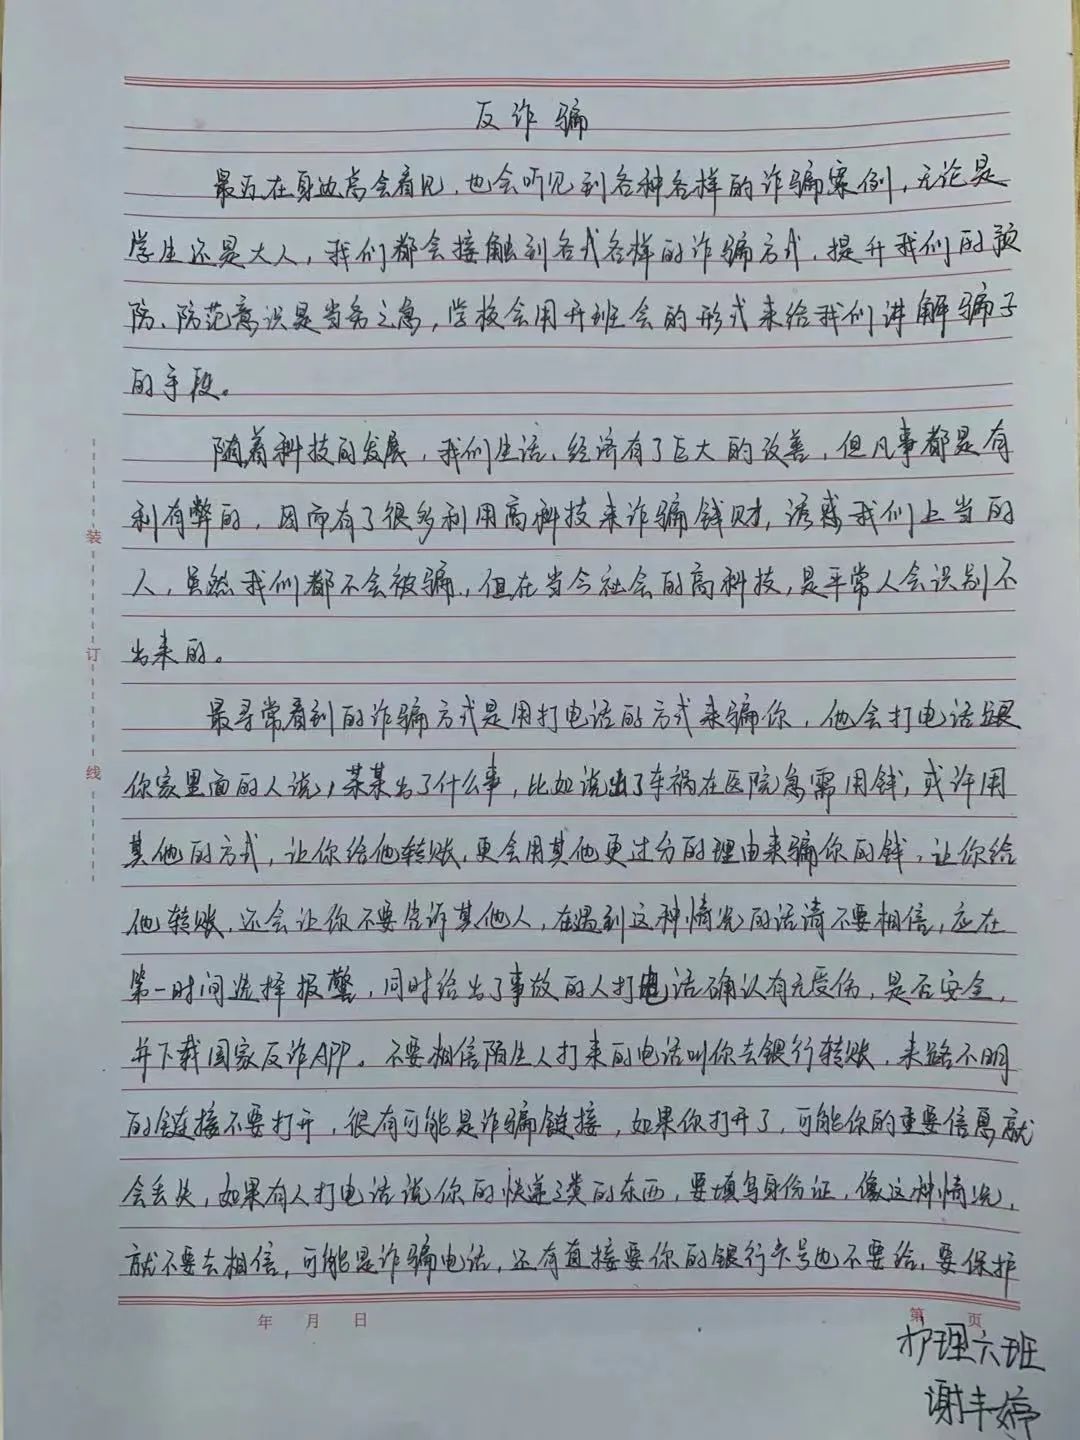 反诈骗
最近在身边常会看见,也会听见到各种各样的诈骗案例,无论是
学生还是大人,我们都会接触到各式各样的诈骗方式,提升我们的预
防、防范意识是当务之急,学校会用开班会的形式来给我们讲解骗子
的手段。
随着科技的发展,我们生活、经济有了巨大的改善,但凡事都是有
利有弊的,因而有了很多利用高科技来诈骗钱财,诱惑我们上当的
人,虽然我们都不会被骗,但在当今社会的高科技,是平常人会识别不
出来的。
最寻常看到的诈骗方式是用打电话的方式来骗你,他会打电话跟
你家里面的人说,某某出了什么事,比如说出了车祸在医院急需用钱,或许用
其他的方式,让你给他转账,更会用其他更过分的理由来骗你的钱,让你给
他转账,还会让你不要告诉其他人,在遇到这种情况的话请不要相信,应在
第一时间选择报警,同时给出了事故的人打电话确认有无受伤,是否安全,
并下载国家反诈APP。不要相信陌生人打来的电话叫你去银行转账,来路不明
的链接不要打开,很有可能是诈骗链接,如果你打开了,可能你的重要信息就
会丢失,如果有人打电话说你的快递之类的东西,要填写身份证,像这种情况,
就不要去相信,可能是诈骗电话,还有直接要你的银行卡号也不要给,要保护
装
订
线
年 月 日
第 页
护理六班
谢丰婷